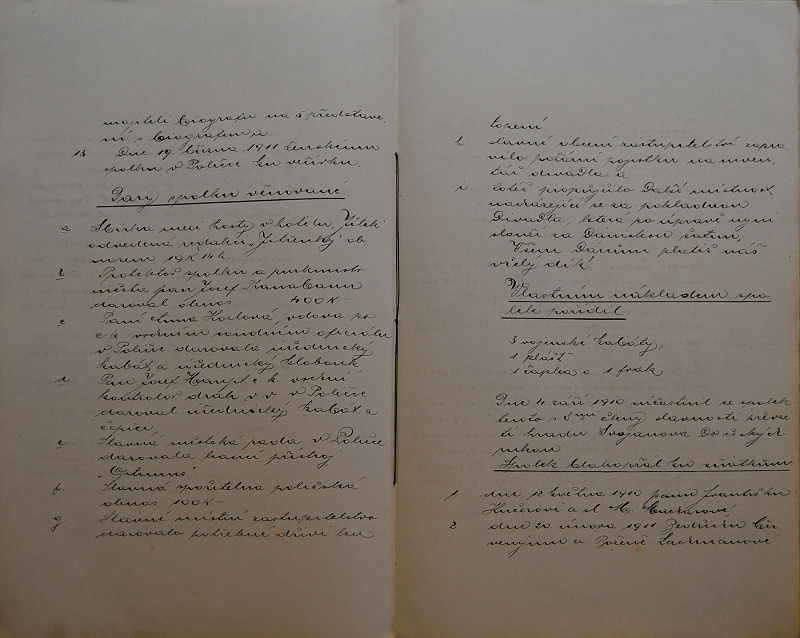 majiteli biografu na 5 představe,
ní s biografem
13 Dne 19. března 1911 ženskému
spolku v Poličce ku večírku.
Dary spolku věnované
a Sbírka mezi hosty v hotelu "Jílek"
odvedená redakcí "Jitřenky" ob
nosem 19 K 14 h.
b Protektor spolku a purkmistr
města pan Josef
daroval obnos 400 K-
c Paní Anna Horlová, vdova po
c.k. vrchním soudním oficiálu
v Poličce darovala úřednický
kabát a úřednický klobouk
d Pan Josef Hampl c.k. vrchní
kontrolor drah v.v. v Poličce
daroval úřednický kabát a
čepici
e Slavná městská rada v Poličce
darovala hasicí přístroj
"Optimus"
f. Slavná spořitelna poličská
obnos 100 K-
g Slavné místní zastupitelstvo
darovalo potřebné dříví ku
topení,
h slavné obecní zastupitelstvo zapra
vilo požární pojistku na inven,
tář divadla a
i totéž propůjčilo další místnost
nacházející se za pokladnou
Divadla, která po úpravě nyní
slouží za Dámskou šatnu,
Všem Dárcům platiž náš
vřelý dík!
Vlastním nákladem spo
lek pořídil
3 vojenské kabáty,
1 plášť
1 čapka a 1 frak
Dne 4. září 1910 účastnil se spolek
tento s 5mi členy slavnosti převze
tí hradu Svojanova Do českých
rukou
Spolek blahopřál ku sňatkům
1. dne 12 května 1910 panu Františku
Kučerovi a sl. M.
2 dne 20. února 1911 Bedřichu Čer
venýmu a Boženě Lackmanové